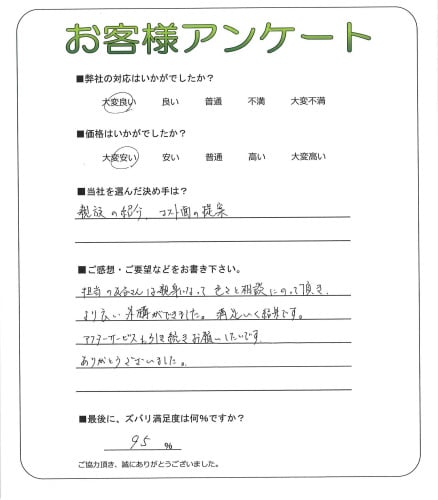 お客様アンケート
■弊社の対応はいかがでしたか?
大変良い 良い 普通 不満 大変不満
■価格はいかがでしたか?
大変安い 安い 普通 高い 大変高い
■当社を選んだ決め手は?
の紹介、コスト面の提案
■ご感想・ご要望などをお書き下さい。
担当の さんは親身になって色々と相談にのって頂き、
より良い ができました。満足いく結果です。
アフターサービスも引き続きお願いしたいです
ありがとうございました。
■最後に、ズバリ満足度は何%ですか?
95 %
ご協力頂き、誠にありがとうございました。